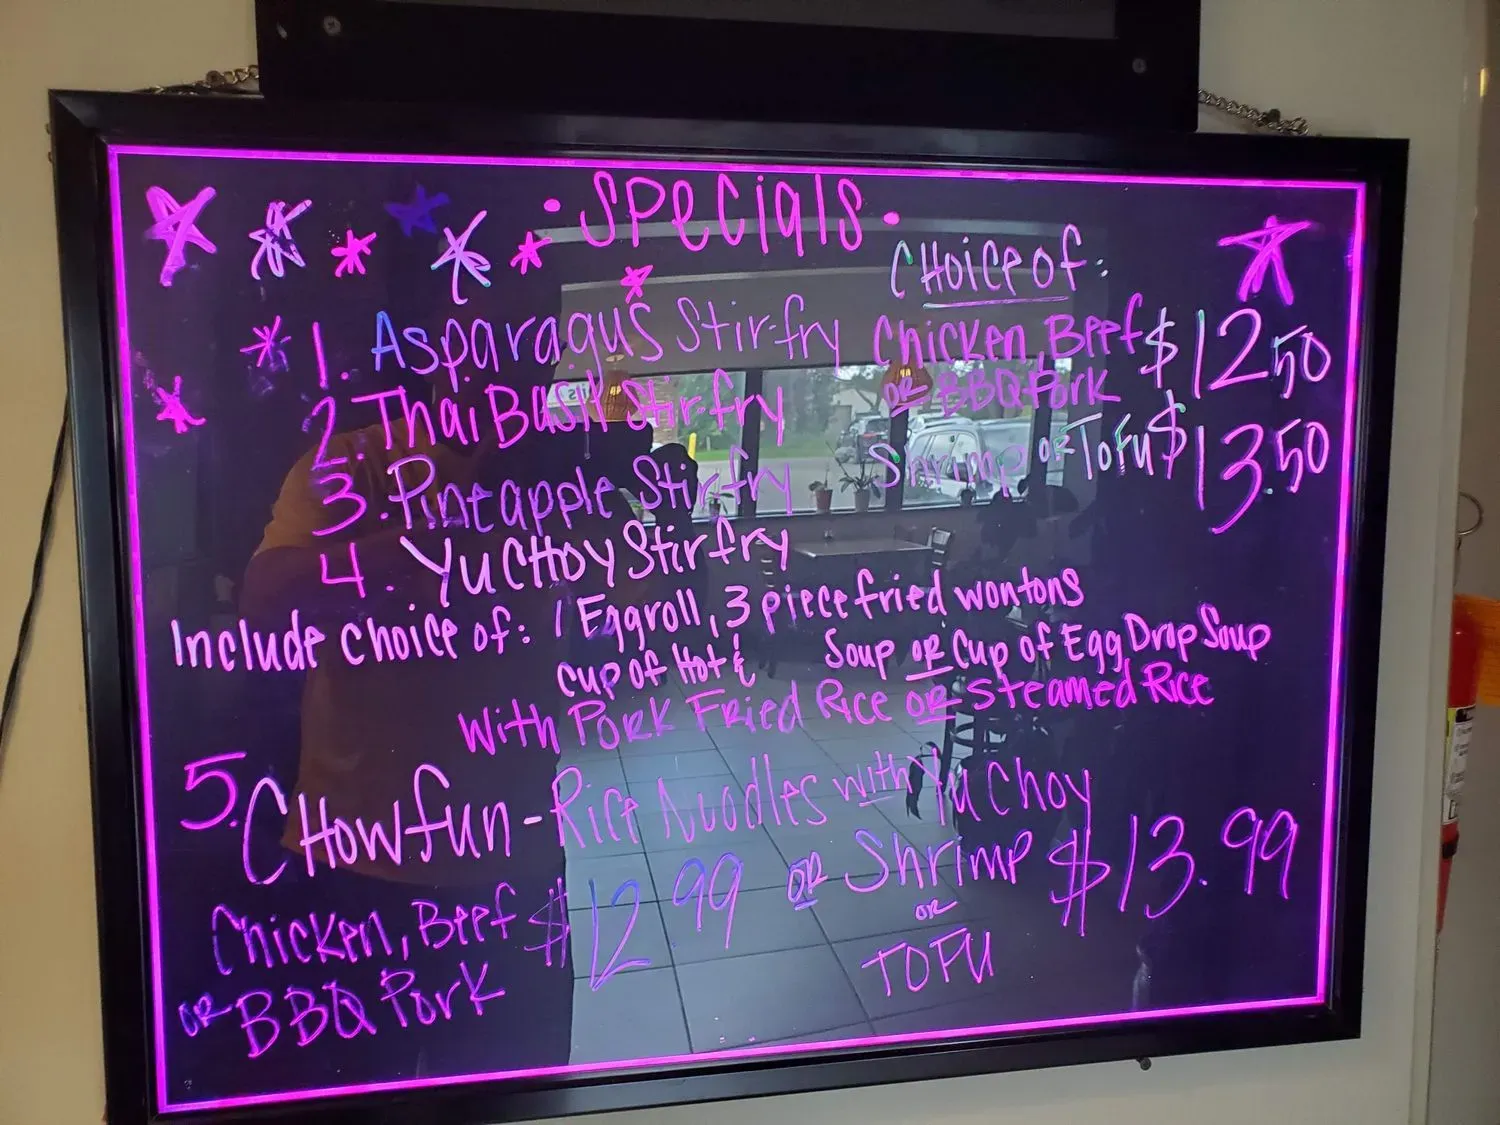 • Specials •
Choice of:
1. Asparagus Stir-fry Chicken, Beef $12.50
or BBQ Pork
2. Thai Basil Stir-fry
3. Pineapple Stir fry Shrimp or Tofu $13.50
4. Yu Choy Stir fry
Include choice of: 1 Eggroll, 3 piece fried wontons
cup of Hot & Soup or Cup of Egg Drop Soup
with Pork Fried Rice or Steamed Rice
5. Chow fun - Rice Noodles with Yu Choy
Chicken, Beef $12.99 or Shrimp $13.99
or BBQ Pork
or
TOFU